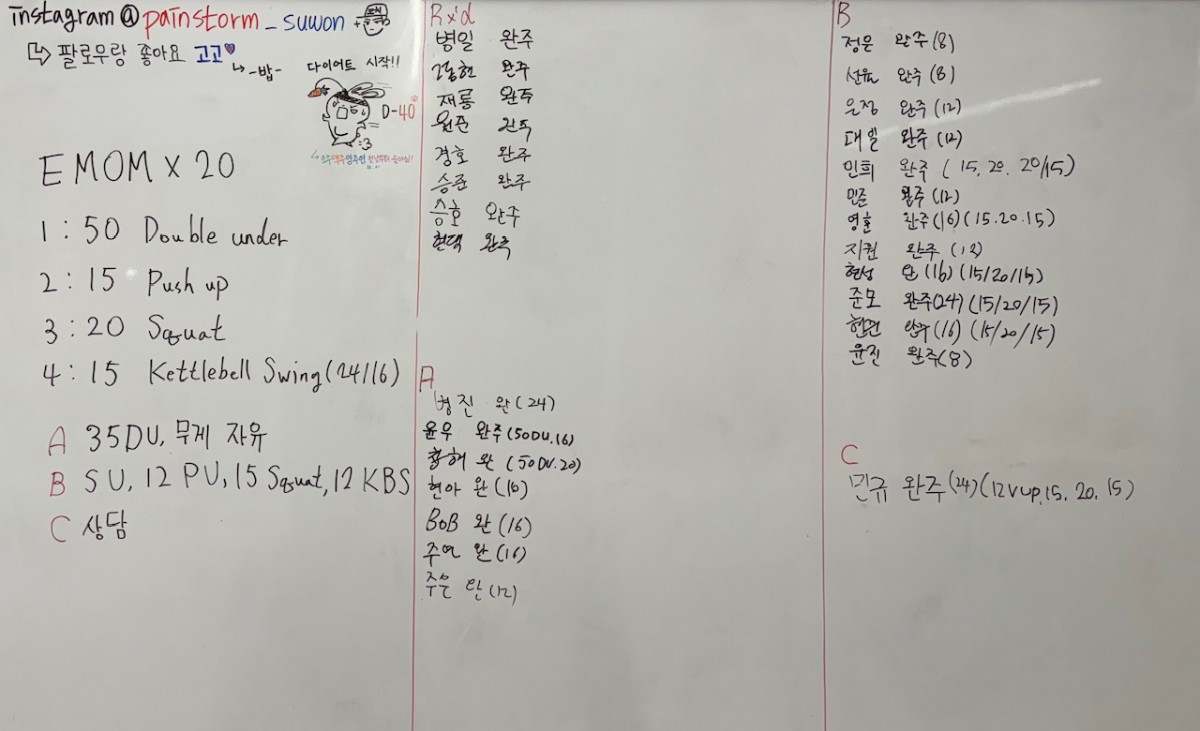 instagram@painstorm_suwon
팔로우랑 좋아요 고고
-밥-
다이어트 시작!!
D-40
EMOM x 20
1 : 50 Double under
2 : 15 Push up
3 : 20 Squat
4 : 15 Kettlebell Swing(24/16)
A 35DU, 무게 자유
B SU, 12 PU, 15 Squat, 12 KBS
C 상담
Rx'd
병일 완주
완주
재룡 완주
원준 완주
경호 완주
승준 완주
승호 완주
현택 완주
A
병진 완(24)
윤우 완주(50DU.16)
완(50DU.20)
현아 완(16)
BoB 완(16)
완(16)
주은 완(12)
B
정은 완주(8)
선유 완주(8)
은정 완주(12)
대일 완주(12)
민희 완주(15. 20. 20/15)
민준 완주(12)
영훈 완주(16)(15.20.15)
지권 완주(12)
현성 완(16)(15/20/15)
준모 완주(24)(15/20/15)
완주(16)(15/20/15)
윤진 완주(8)
C
민규 완주(24)(12V up, 15. 20. 15)